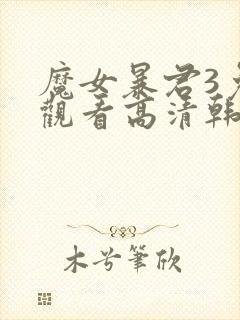 魔女暴君3免
觀看高清韩
木兮筆欣